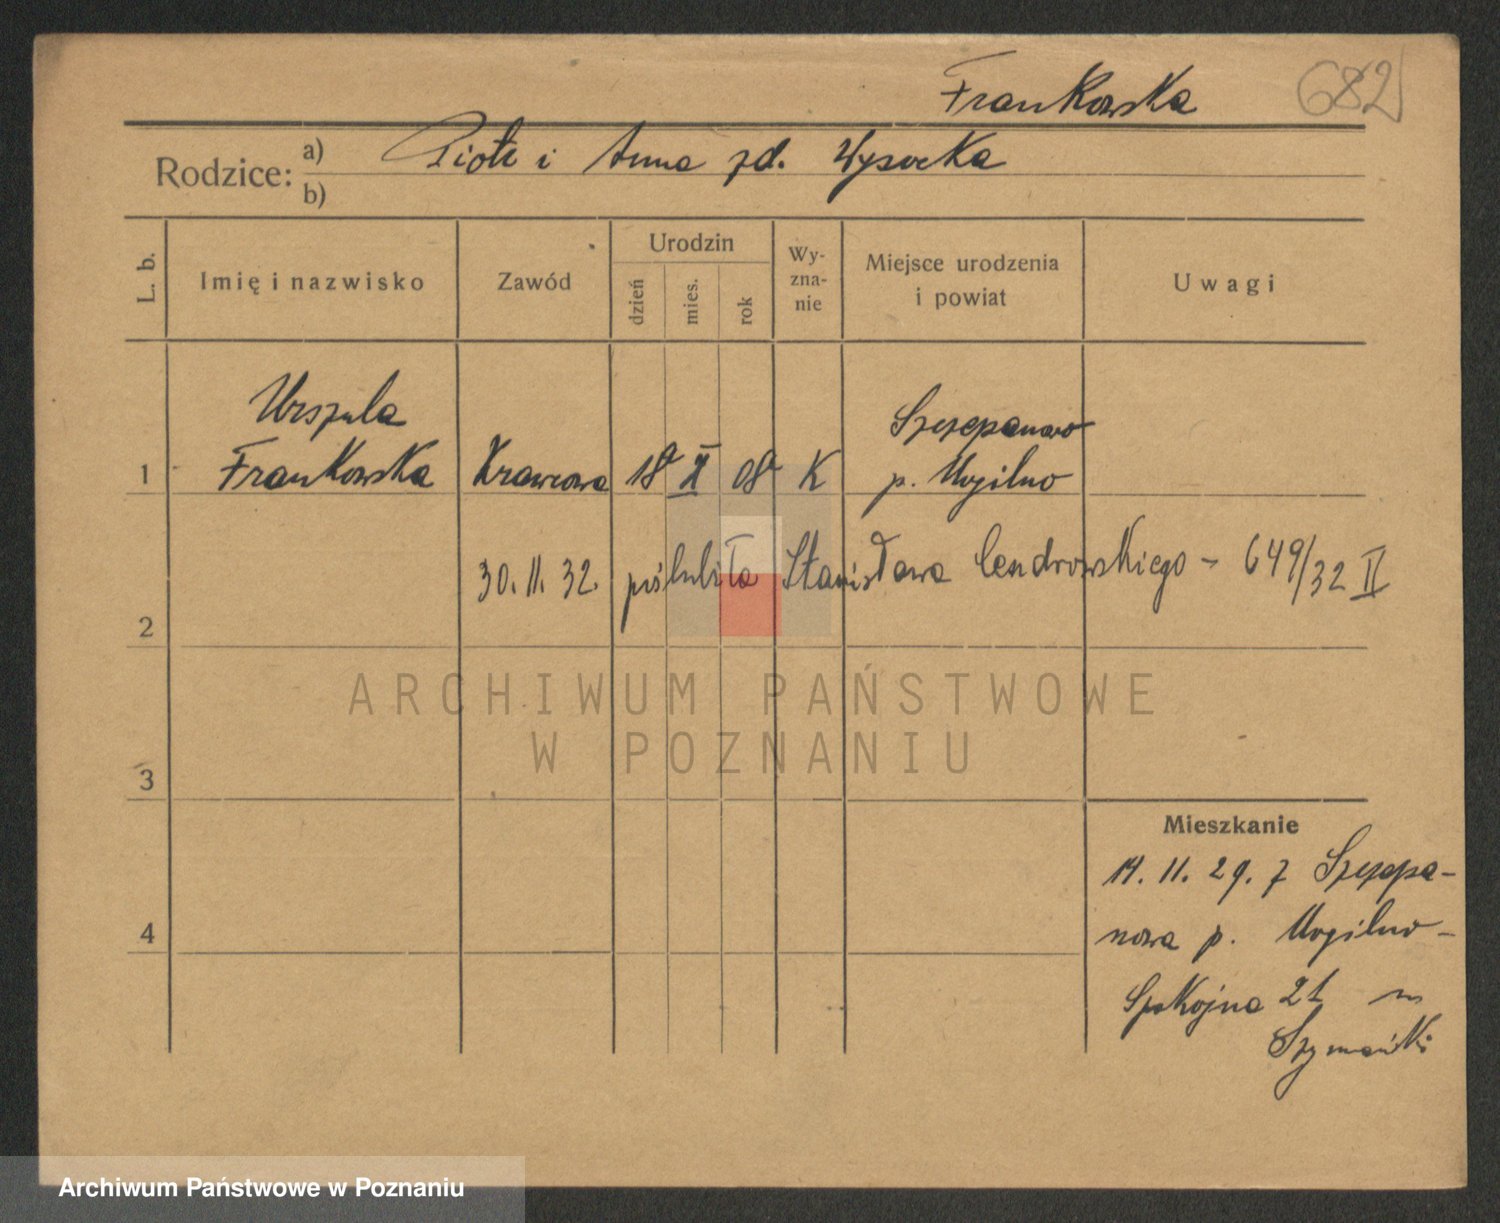 Frankowska
682
Rodzice: a) Piotr i Anna zd. Wysocka
b)
L. b.
Imię i nazwisko
Zawód
Urodzin
dzień
mies.
rok
Wy-
zna-
nie
Miejsce urodzenia
i powiat
Uwagi
Urszula
Szczepanowo
1 Frankowska Krawcowa 18 X 08 K p. Mogilno
30.11.32. poślubiła Stanisława Cendrowskiego - 649/32 II
2
ARCHIWUM PAŃSTWOWE
W POZNANIU
3
Mieszkanie
14.11.29. z Szczepa-
4 nowa p. Mogilno-
Spokojna 21 m
Szymański
Archiwum Państwowe w Poznaniu